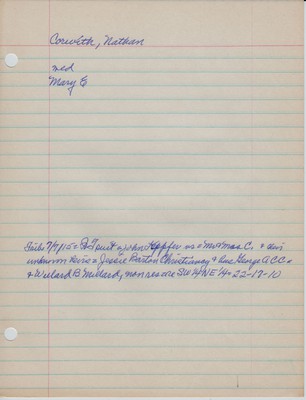 Corwith, Nathan
med
Mary E
Tribs 7/7/15 = John Hepfer vs = Mrs Mae C. &
unknown heirs = Jessie Barton Christiancy & hus George A C C. =
& Willard B Millard, non res are SW¼NE¼ = 22-17-10